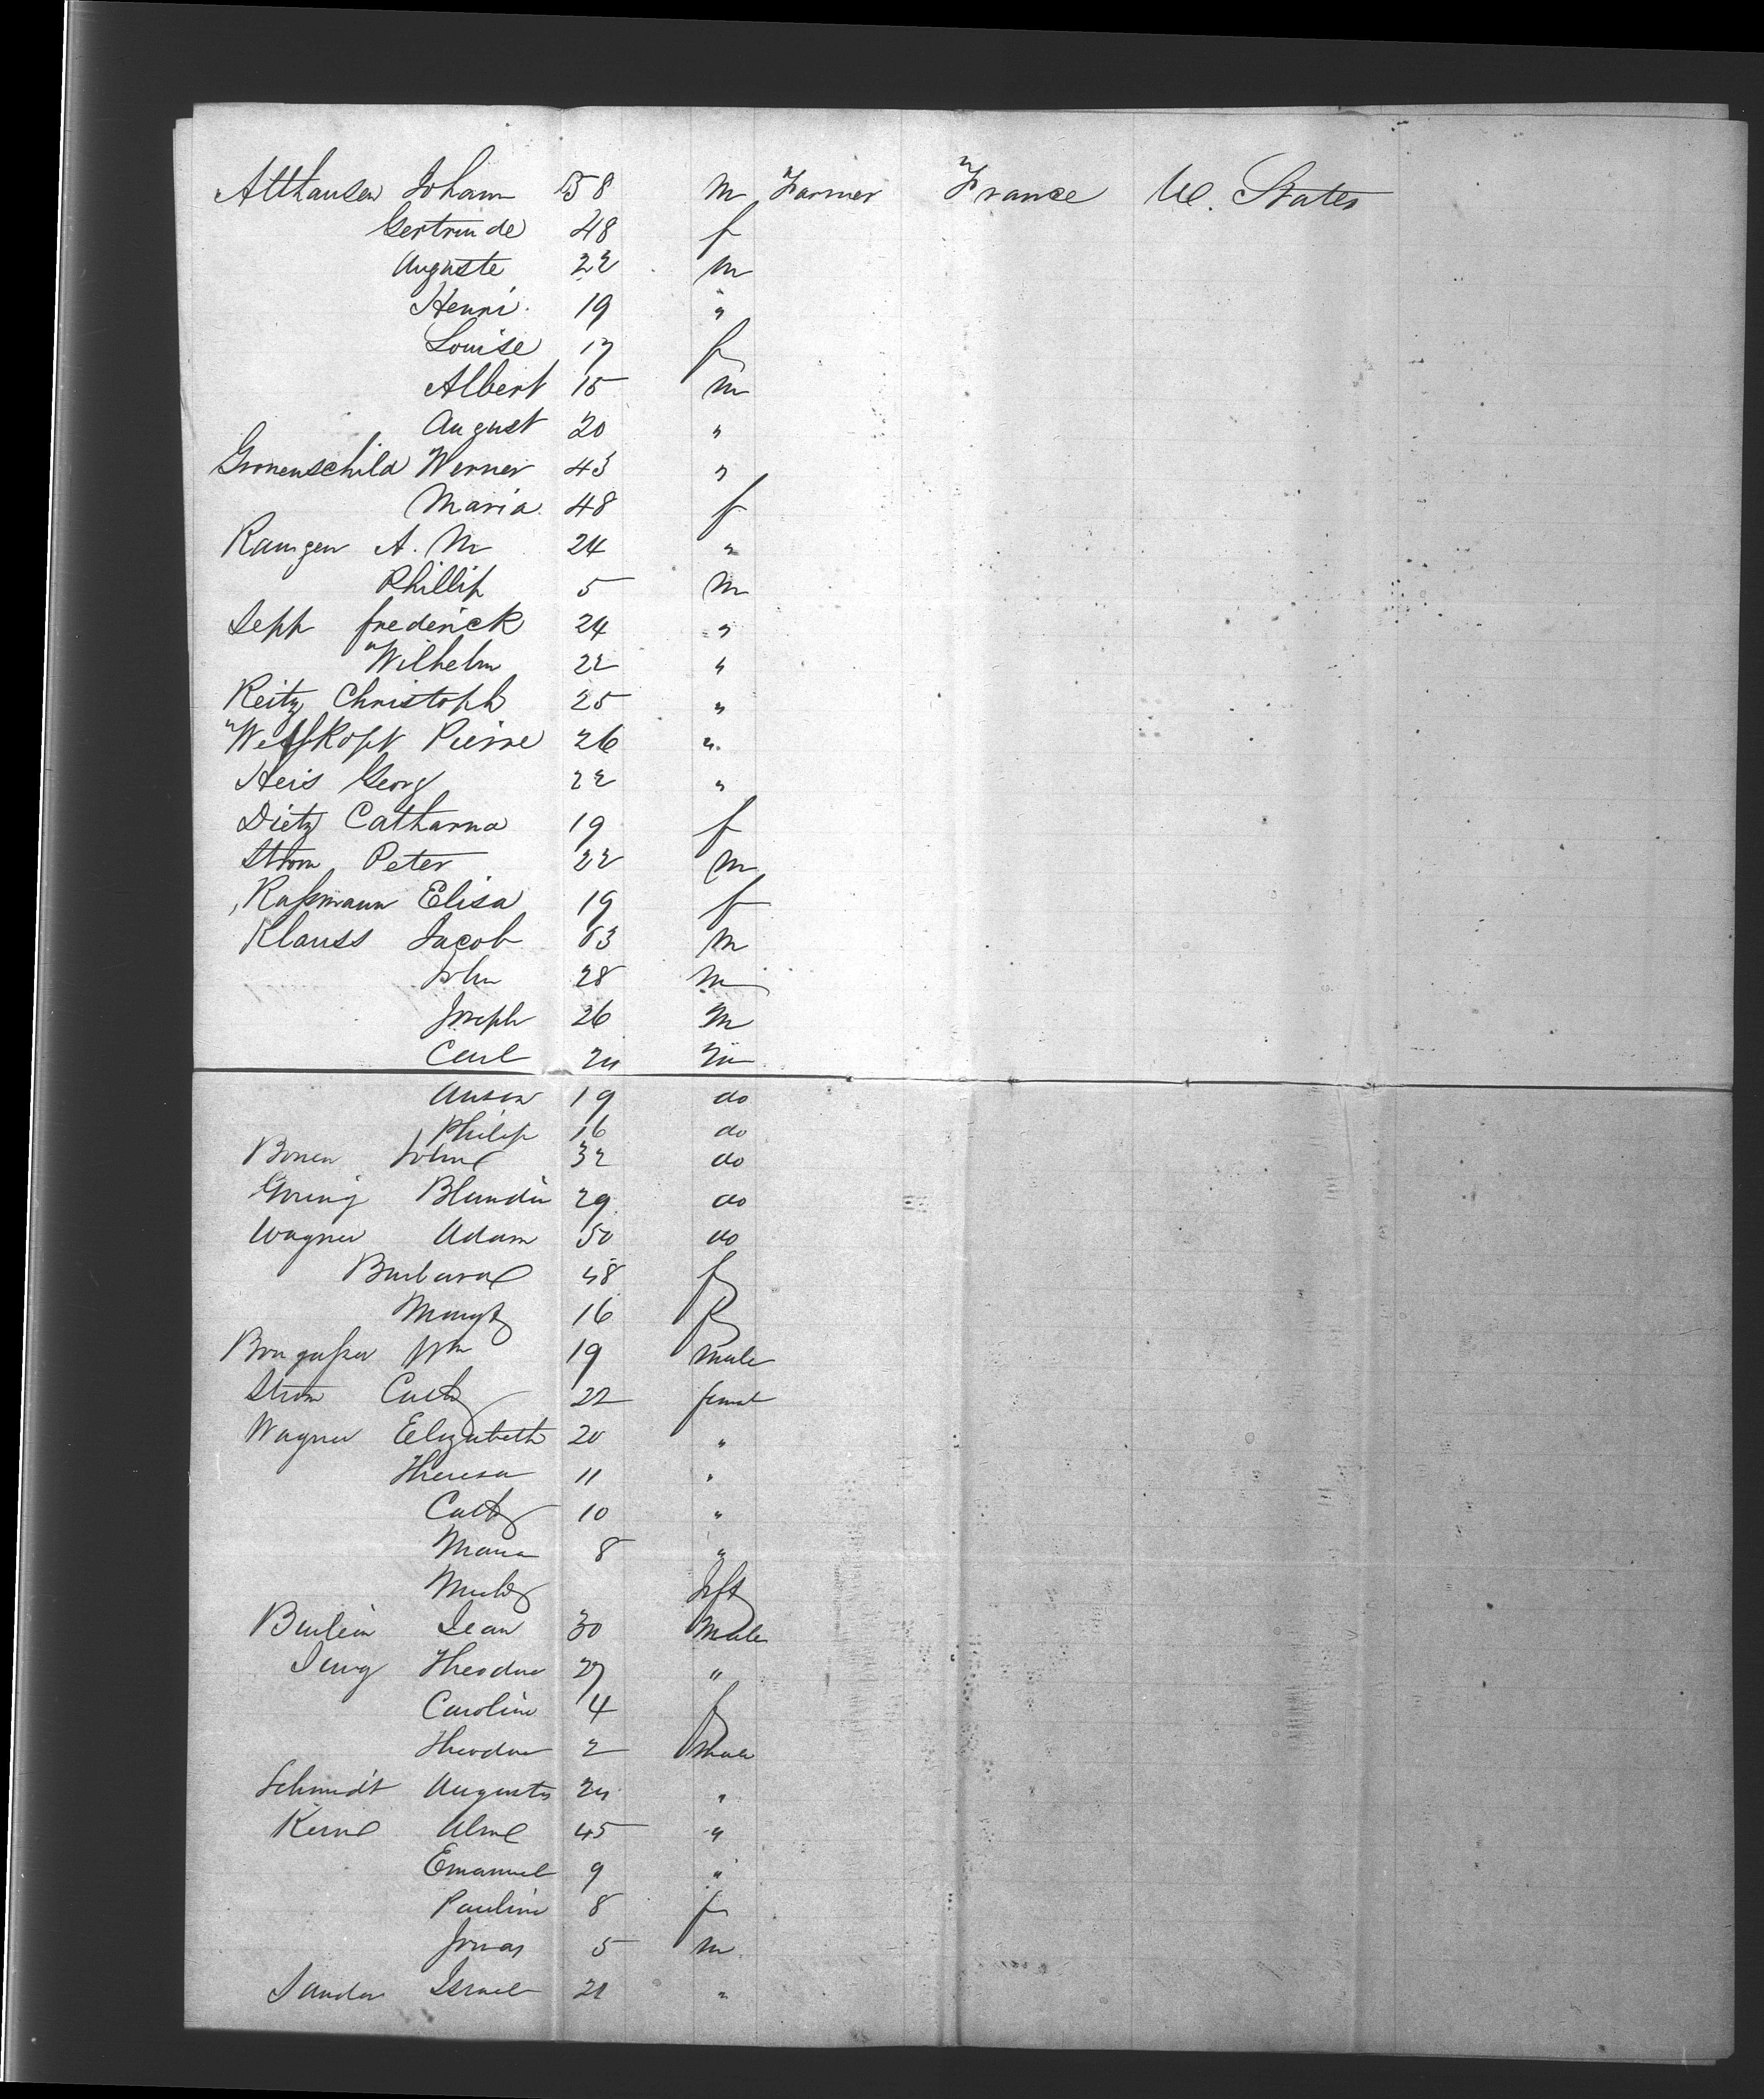 Althausen Johann 58 m Farmer France U. States
Gertrunde 48 f
Auguste 22 m
Henri 19 "
Louise 17 f
Albert 15 m
August 20 "
Gronenschild Werner 43 "
Maria 48 f
Ramgen A. M 24 "
Phillip 5 m
Sepp frederick 24 "
Wilhelm 22 "
Reitz Christoph 25 "
Weißkopf Pierre 26 "
Heis Georg 22 "
Dietz Catharna 19 f
Strom Peter 22 m
Raßmann Elisa 19 f
Klauss Jacob 63 m
John 28 m
Joseph 26 m
Carl 24 m
Anson 19 do
Philip 16 do
Bonen John 32 do
Goring Blandin 29 do
Wagner Adam 50 do
Barbara 48 f
Margt 16 f
Wm 19 male
Strom Cath 22 femal
Wagner Elizabeth 20 "
Theresa 11 "
Cath 10 "
Maria 8 "
Inft
Jean 30 Male
Jung Theodor 27 "
Carolin 4 f
Theodor 2 Male
Schmidt Augusts 24 "
Kern 45 "
Emanuel 9 "
Paulini 8 f
Jonas 5 m
Sander Israel 21 "